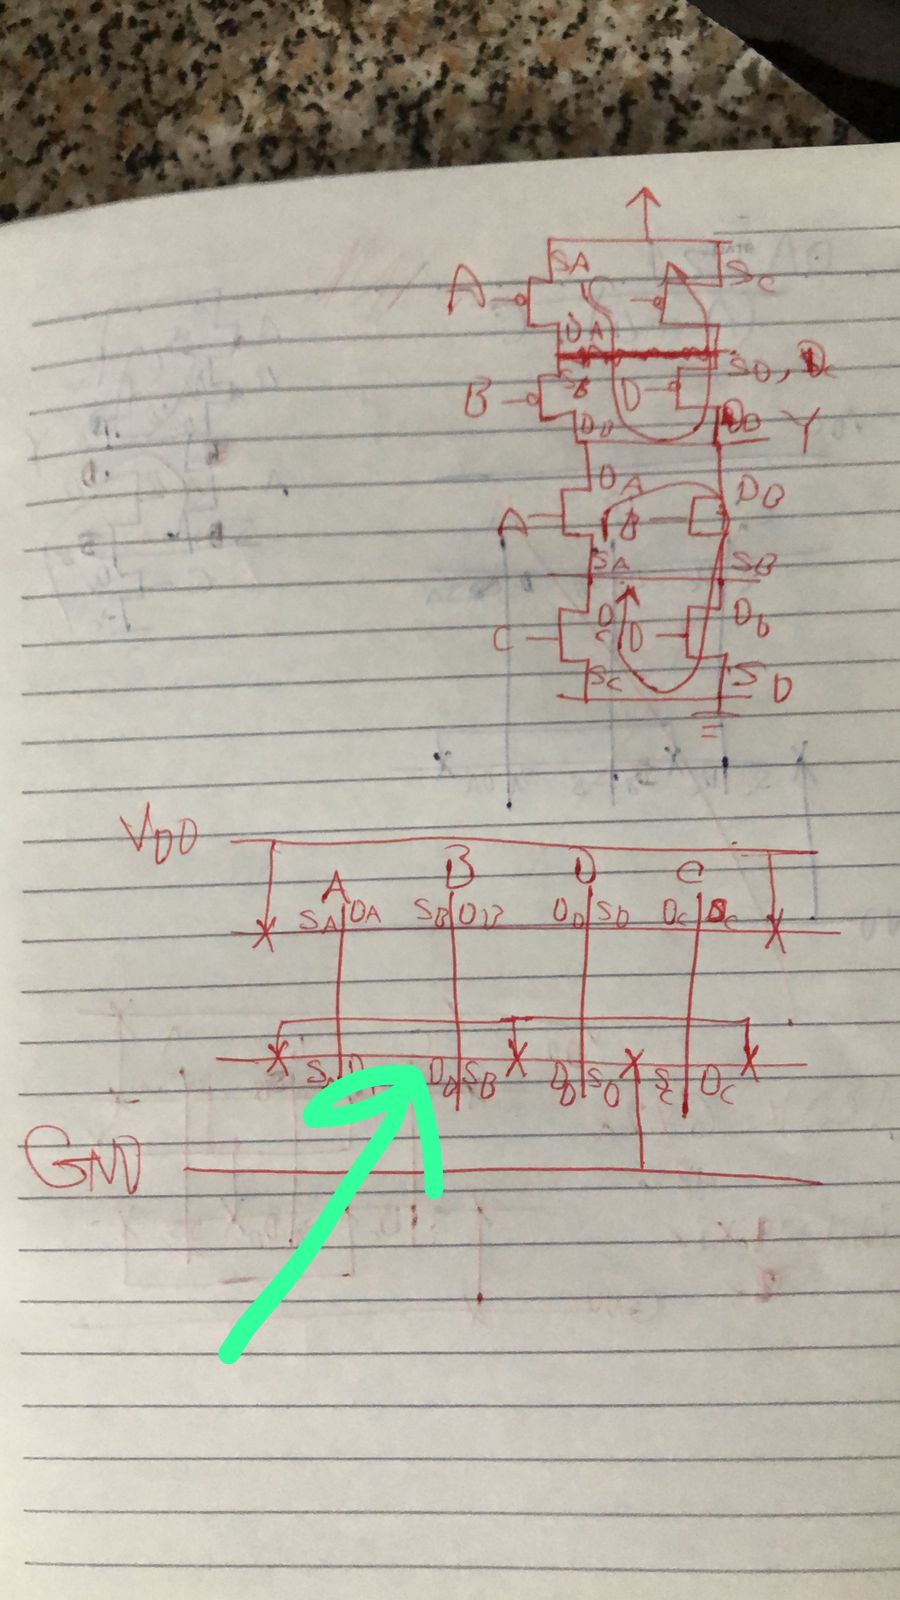 A SA SC
DA
SB SD, DC
B D
DD Y
DA DB
A B
SA SB
C DC D Db
SC SD
VDD
A B D C
SA DA SB DB DD SD DC SC
DB SB DD SD SC DC
GND